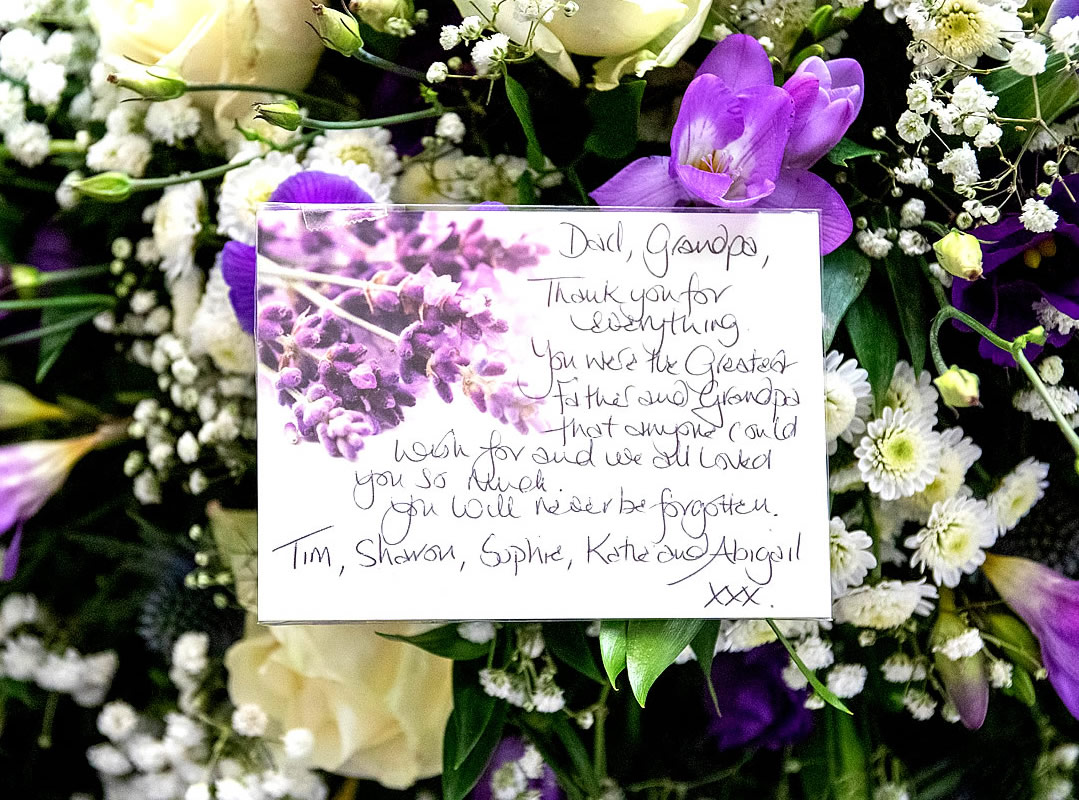 Dad, Grandpa,
Thank you for
everything.
You were the Greatest
Father and Grandpa
that anyone could
wish for and we all loved
you so much.
you will never be forgotten.
Tim, Sharon, Sophie, Katie and Abigail
xxx.